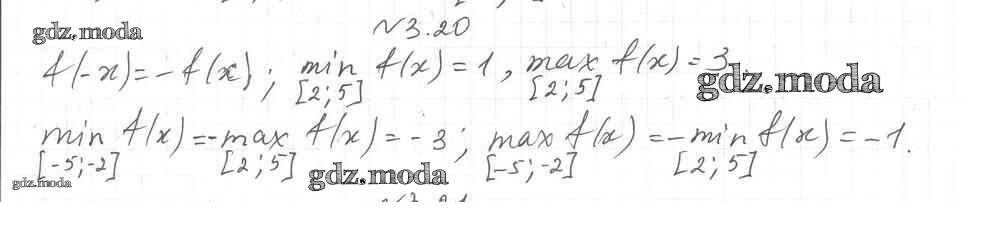 №3.20
gdz.moda
f(-x) = -f(x); min f(x) = 1, max f(x) = 3
[2;5] [2;5]
gdz.moda
min f(x) = -max f(x) = -3; max f(x) = -min f(x) = -1.
[-5;-2] [2;5] [-5;-2] [2;5]
gdz.moda
gdz.moda